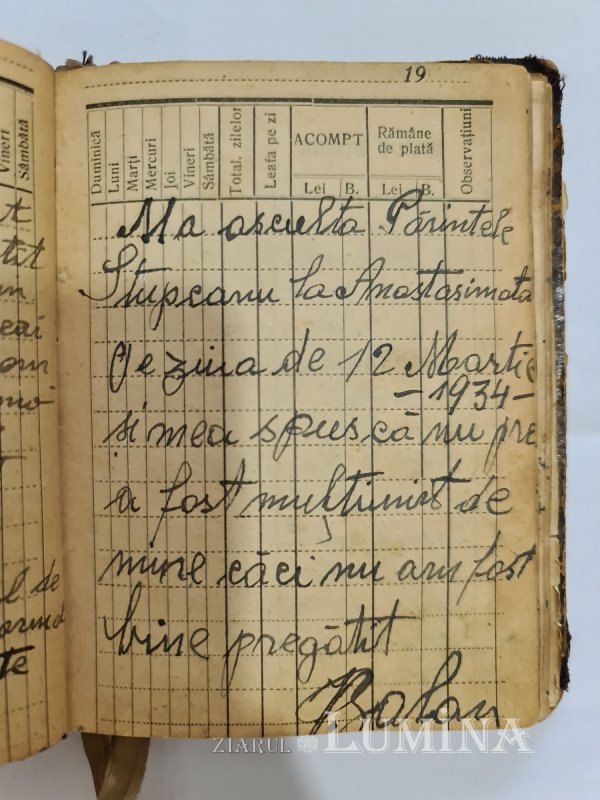 19
Vineri
Sâmbătă
Duminică
Luni
Marți
Mercuri
Joi
Vineri
Sâmbătă
Total. zilelor
Leafa pe zi
ACOMPT
Lei B.
Rămâne
de plată
Lei B.
Observațiuni
Ma asculta Părintele
Stupcanu la Anastasimata
Pe ziua de 12 Martie
- 1934 -
și mea spus că nu pre
a fost mulțumit de
mine căci nu am fost
bine pregătit
Balan
de
te
ZIARUL LUMINA